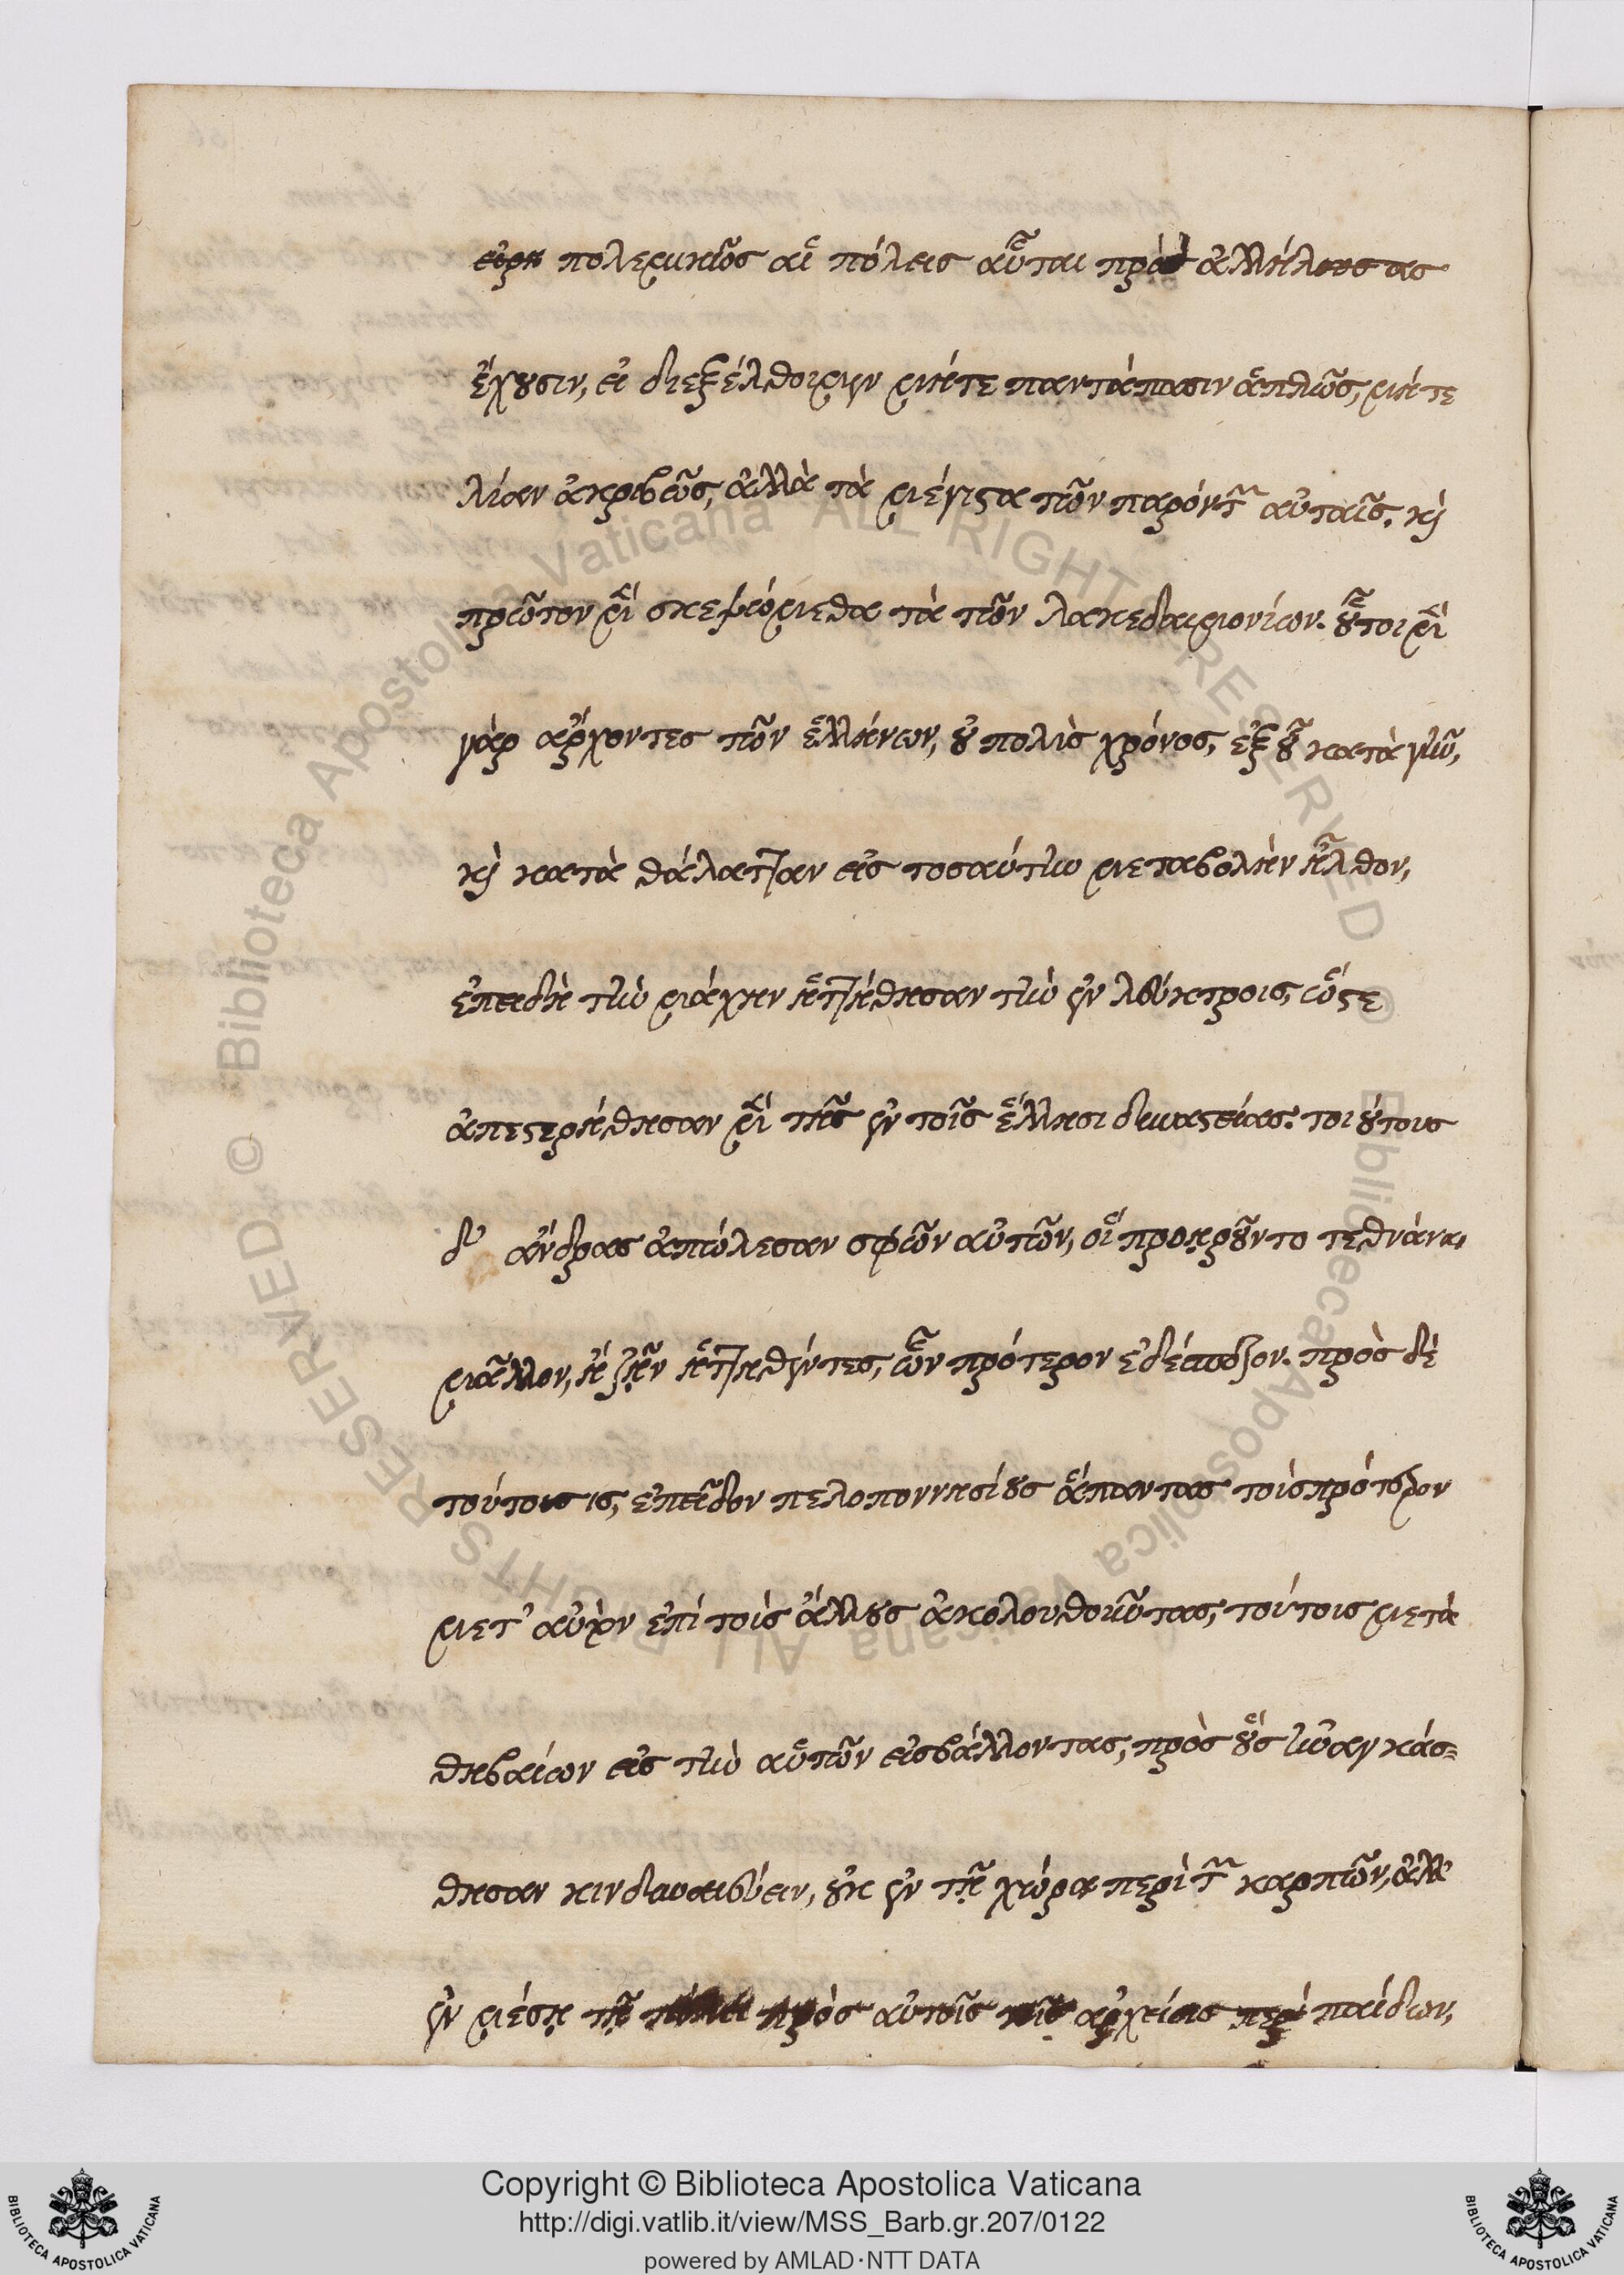 πολεμικῶς αἱ πόλεις αὗται πρὸς ἀλλήλους ας
ἔχουσιν, εἰ διεξέλθοιμεν μήτε παντάπασιν ἁπλῶς, μήτε
λίαν ἀκριβῶς, ἀλλὰ τὰ μέγιστα τῶν παρόντων αὐταῖς. καὶ
πρῶτον μὲν σκεψώμεθα τὰ τῶν λακεδαιμονίων. οὗτοι μὲν
γὰρ ἄρχοντες τῶν ἑλλήνων, οὐ πολὺς χρόνος, ἐξ οὗ κατὰ γῆν,
καὶ κατὰ θάλατταν εἰς τοσαύτην μεταβολὴν ἦλθον,
ἐπειδὴ τὴν μάχην ἡττήθησαν τὴν ἐν λεύκτροις, ὥστε
ἀπεστερήθησαν μὲν τῆς ἐν τοῖς ἕλλησι δυναστείας. τοιούτους
δ' ἄνδρας ἀπώλεσαν σφῶν αὐτῶν, οἳ προῃροῦντο τεθνάναι
μᾶλλον, ἢ ζῆν ἡττηθέντες, ὧν πρότερον ἐδέσποζον. πρὸς δὲ
τούτοις ις, ἐπεῖδον πελοποννησίους ἅπαντας τοὺς πρότερον
μετ' αὐτῶν ἐπὶ τοὺς ἄλλους ἀκολουθοῦντας, τούτοις μετὰ
θηβαίων εἰς τὴν αὑτῶν εἰσβάλλοντας, πρὸς οὓς ἠναγκάσ=
θησαν κινδυνεύειν, οὐκ ἐν τῇ χώρᾳ περὶ τῶν καρπῶν, ἀλλ'
ἐν μέσῃ τῇ πόλει πρὸς αὐτοῖς τοῖς ἀρχείοις περὶ παίδων,
Copyright © Biblioteca Apostolica Vaticana
http://digi.vatlib.it/view/MSS_Barb.gr.207/0122
powered by AMLAD·NTT DATA